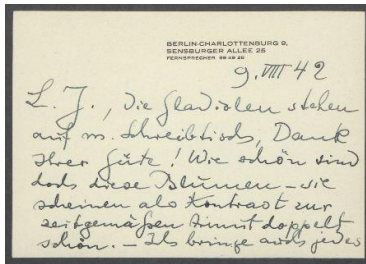 BERLIN-CHARLOTTENBURG 9,
SENSBURGER ALLEE 26
FERNSPRECHER 99 49 26
9. VIII 42
L. J., die Gladiolen stehen
auf m. Schreibtisch, Dank
Ihrer Güte! Wie schön sind
doch diese Blumen – sie
scheinen als Kontrast zur
zeitgemäßen doppelt
schön. – Ich bringe auch